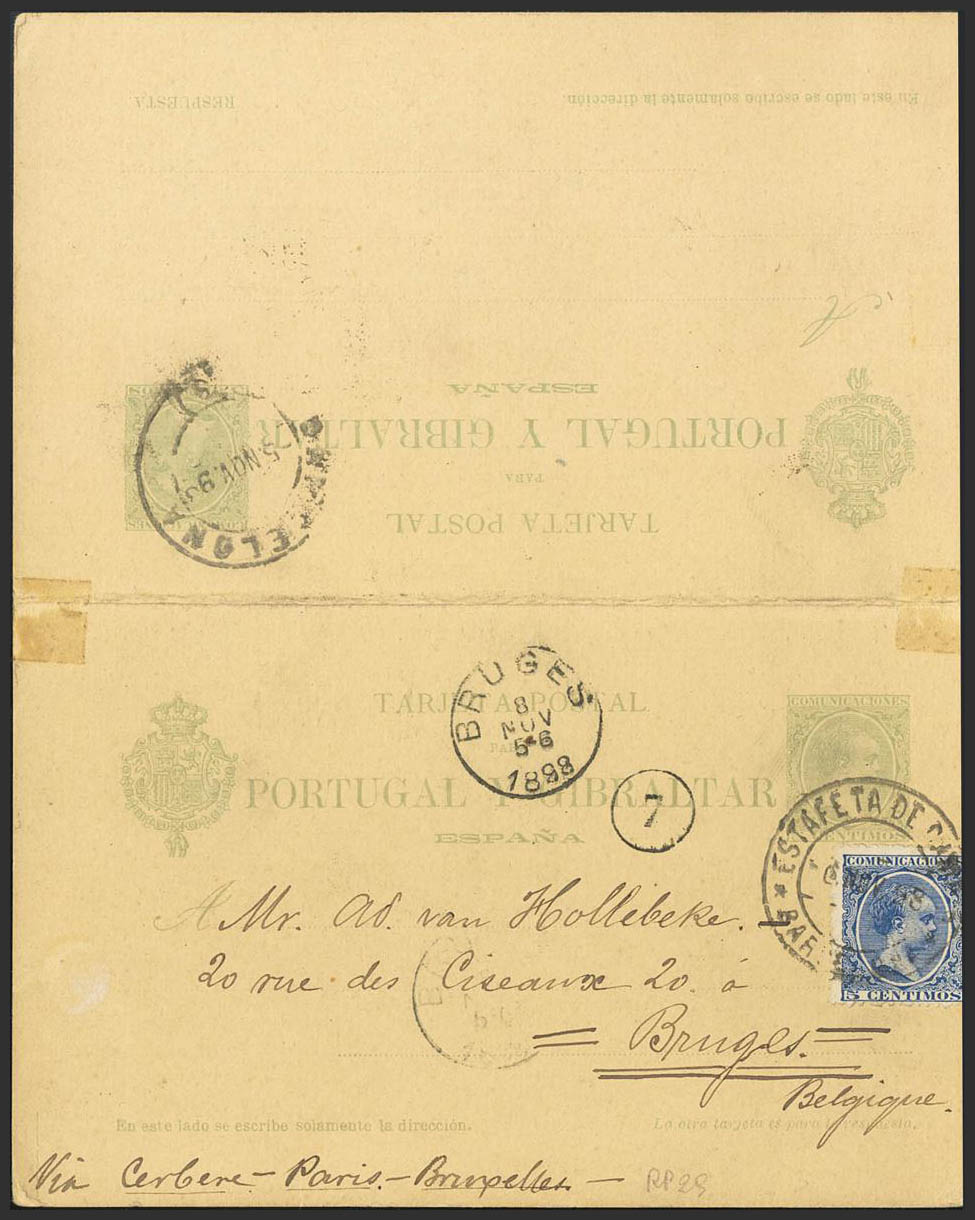 En este lado se escribe solamente la dirección.
RESPUESTA
A
ESPAÑA
PORTUGAL Y GIBRALTAR
PARA
TARJETA POSTAL
5 NOV. 98
TARJETA POSTAL
PARA
PORTUGAL Y GIBRALTAR
ESPAÑA
BRUGES
8
NOV
5-6
1898
7
COMUNICACIONES
CENTIMOS
* ESTAFETA DE
BAR
COMUNICACIONES
5 CENTIMOS
A Mr. Ad. van Hollebeke.
20 rue des Ciseaux 20. á
= Bruges. =
Belgique.
En este lado se escribe solamente la dirección.
La otra tarjeta es para la respuesta.
Via Cerbere - Paris. - Bruxelles -
RP29